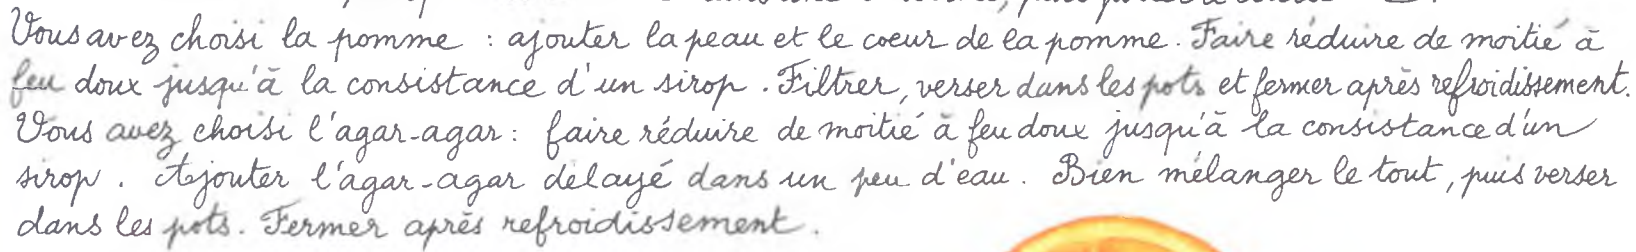 Vous avez choisi la pomme : ajouter la peau et le coeur de la pomme. Faire réduire de moitié à
feu doux jusqu'à la consistance d'un sirop. Filtrer, verser dans les pots et fermer après refroidissement.
Vous avez choisi l'agar-agar : faire réduire de moitié à feu doux jusqu'à la consistance d'un
sirop. Ajouter l'agar-agar délayé dans un peu d'eau. Bien mélanger le tout, puis verser
dans les pots. Fermer après refroidissement.